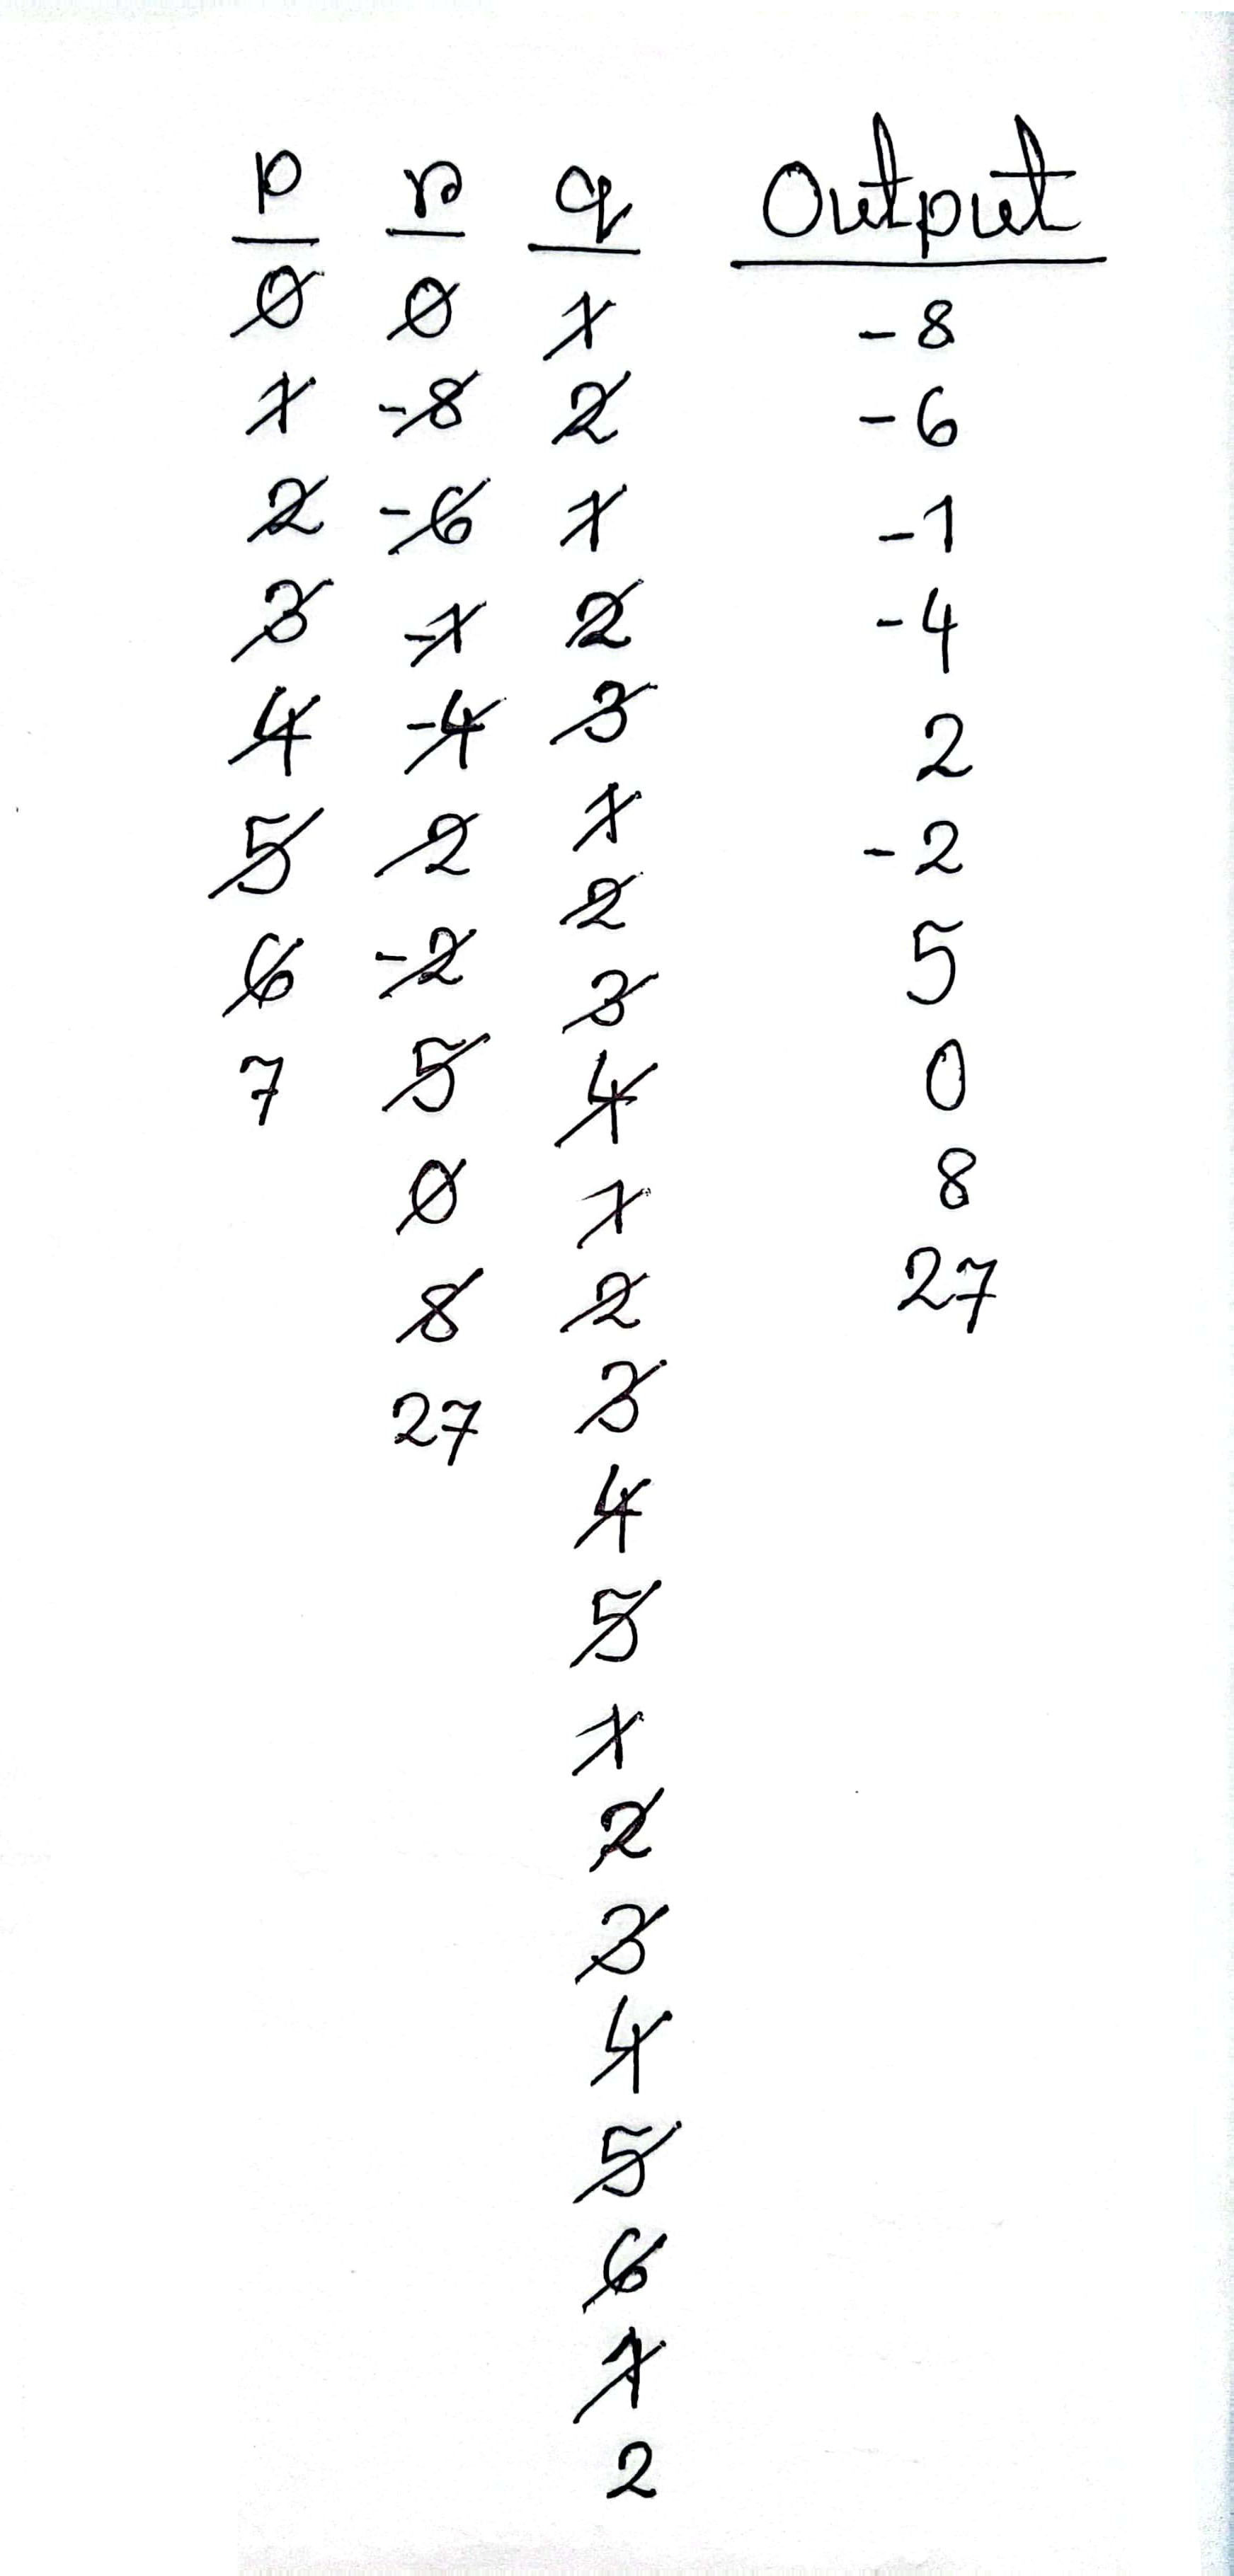 p r q Output
0 0 1 -8
1 -8 2 -6
2 -6 1 -1
3 -1 2 -4
4 -4 3 2
5 2 1 -2
2
6 -2 3 5
7 5 4 0
0 1 8
8 2 27
27 3
4
5
1
2
3
4
5
6
1
2